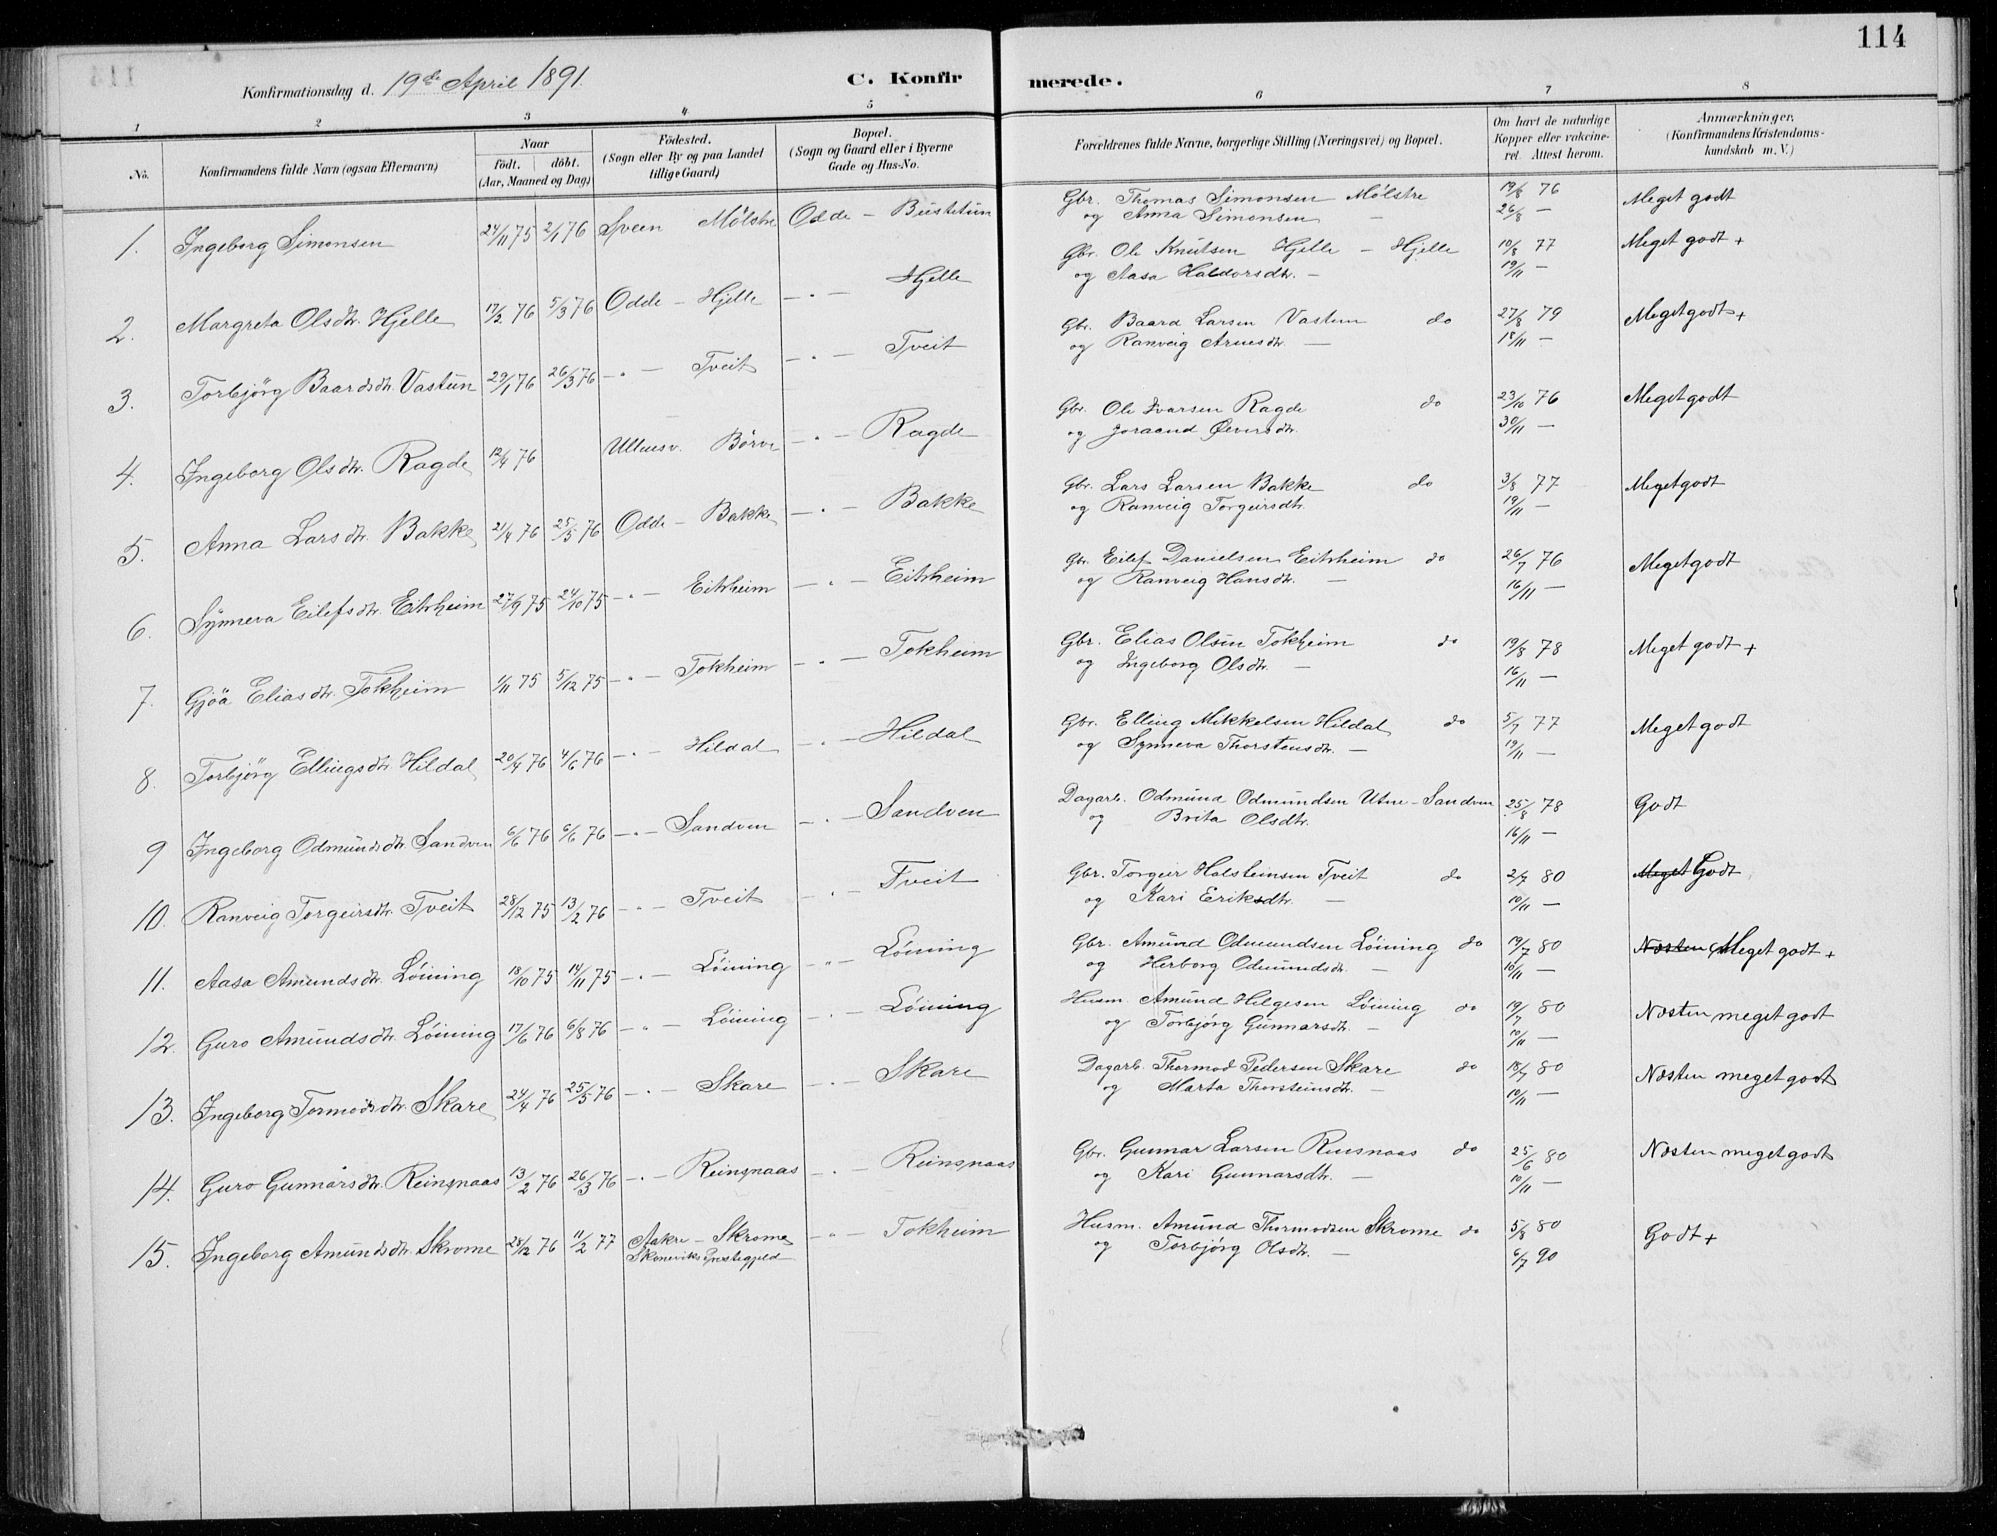 114
Konfirmationsdag d. 19de April 1891.
C. Konfirmerede.
1 2 3 4 5 6 7 8
No.
Konfirmandens fulde Navn (ogsaa Efternavn)
Naar
födt. döbt.
(Aar, Maaned og Dag)
Födested.
(Sogn eller By og paa Landet
tillige Gaard)
Bopæl.
(Sogn og Gaard eller i Byerne
Gade og Hus-No.
Forældrenes fulde Navne, borgerlige Stilling (Næringsvei) og Bopæl.
Om havt de naturlige
Kopper eller vakcine-
ret. Attest herom.
Anmærkninger.
(Konfirmandens Kristendoms-
kundskab m. V.)
1. Ingeborg Simonsen 24/11 75 2/1 76 Sveen Mölstre Odde - Büstetün Gbr. Thomas Simonsen Mölstre 19/8 76 Meget godt
og Anna Simonsen — 26/8 —
2. Margreta Olsdtr. Hjelle 17/2 76 5/3 76 Odde - Hjelle — " — Hjelle Gbr. Ole Knutsen Hjelle - Hjelle 10/8 77 Meget godt +
og Aasa Haldorsdtr. — 19/11 —
3. Torbjörg Baardsdtr. Vastün 29/1 76 26/3 76 — " — Tveit — " — Tveit Gbr. Baard Larsen Vastün do 27/8 79 Meget godt +
og Ranveig Arnesdtr. — 18/11 —
4. Ingeborg Olsdtr. Ragde 12/4 76 Ullensv. Börve — " — Ragde Gbr. Ole Ivarsen Ragde do 23/10 76 Meget godt
og Joraand Øversdtr. 30/11 —
5. Anna Larsdtr. Bakke 21/4 76 25/5 76 Odde - Bakke — " — Bakke Gbr. Lars Larsen Bakke do 3/8 77 Meget godt
og Ranveig Torgeirsdtr. 19/11 —
6. Synneva Eilefsdtr. Eitrheim 27/9 75 24/10 75 — " — Eitrheim — " — Eitrheim Gbr. Eilef Danielsen Eitrheim do 26/7 76 Meget godt
og Ranveig Hansdtr. — 16/11 —
7. Gjöa Eliasdtr. Tokheim 1/11 75 5/12 75 — " — Tokheim — " — Tokheim Gbr. Elias Olsen Tokheim do 19/8 78 Meget godt +
og Ingeborg Olsdtr. — 16/11 —
8. Torbjörg Ellingsdtr. Hildal 20/4 76 4/6 76 — " — Hildal — " — Hildal Gbr. Elling Mikkelsen Hildal do 5/7 77 Meget godt
og Synneva Thorstensdtr. — 19/11 —
9 Ingeborg Odmündsdtr. Sandven 6/6 76 6/6 76 — " — Sandven — " — Sandven Dagarb. Odmünd Odmündsen Utne - Sandven 25/8 78 Godt
og Breta Olsdtr. 16/11 —
10. Ranveig Torgeirsdtr. Tveit 28/12 75 13/2 76 — " — Tveit — " — Tveit Gbr. Torgeir Holsteinsen Tveit do 2/7 80 Meget Godt
og Kari Eriksdtr. — 10/11 —
11. Aasa Amundsdtr. Löining 18/10 75 14/11 75 — " — Löining — " — Löining Gbr. Amünd Odmundsen Löining do 19/7 80 Næsten Meget godt +
og Herborg Odmundsdtr. — 10/11 —
12. Guro Amündsdtr. Löining 17/6 76 6/8 76 — " — Löining — " — Löining Husm. Amünd Helgesen Löining do 19/7 80 Næsten meget godt
og Torbjörg Günnarsdtr. — 10/11 —
13. Ingeborg Tormodsdtr. Skare 24/4 76 25/5 76 — " — Skare — " — Skare Dagarb. Thormod Pedersen Skare do 18/7 80 Næsten meget godt
og Marta Thorsteinsdtr. — 10/11 —
14. Guro Gunnarsdtr. Reinsnaas 13/2 76 26/3 76 — " — Reinsnaas — " — Reinsnaas Gbr. Gunnar Larsen Reinsnaas do 25/6 80 Næsten meget godt
og Kari Gunnarsdtr. — 10/11 —
15. Ingeborg Amündsdtr. Skrome 28/12 76 11/2 77 Aakre - Skrome — " — Tokheim Husm. Amünd Thormodsen Skrome do 5/8 80 Godt +
Skoneviks Prestegjeld og Torbjörg Olsdtr. — 6/7 90